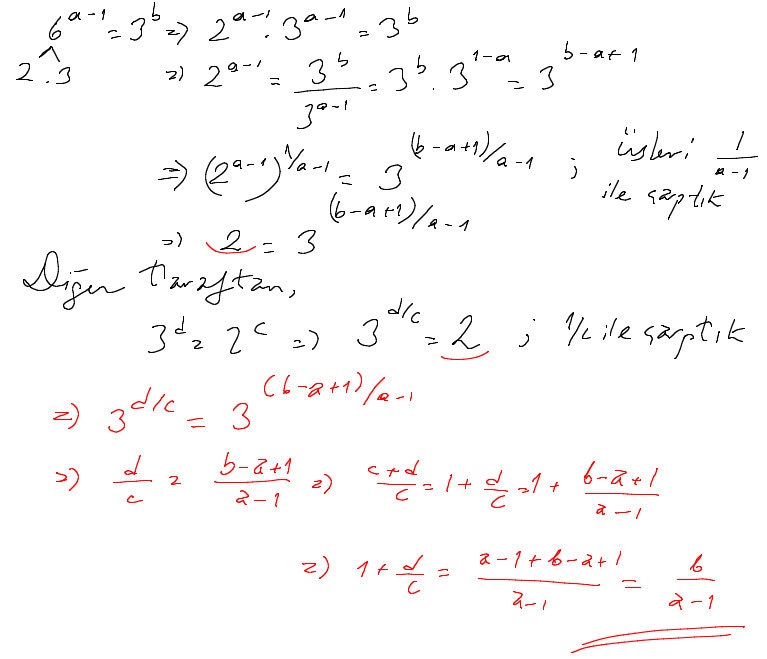 6^{a-1} = 3^b => 2^{a-1} · 3^{a-1} = 3^b
2 . 3 => 2^{a-1} = \frac{3^b}{3^{a-1}} = 3^b · 3^{1-a} = 3^{b-a+1}
=> (2^{a-1})^{1/a-1} = 3^{(b-a+1)/a-1} ; üsleri \frac{1}{a-1} ile çarptık
=> 2 = 3^{(b-a+1)/a-1}
Diğer taraftan,
3^d = 2^c => 3^{d/c} = 2 ; 1/c ile çarptık
=> 3^{d/c} = 3^{(b-a+1)/a-1}
=> \frac{d}{c} = \frac{b-a+1}{a-1} => \frac{c+d}{c} = 1 + \frac{d}{c} = 1 + \frac{b-a+1}{a-1}
=> 1 + \frac{d}{c} = \frac{a-1+b-a+1}{a-1} = \frac{b}{a-1}